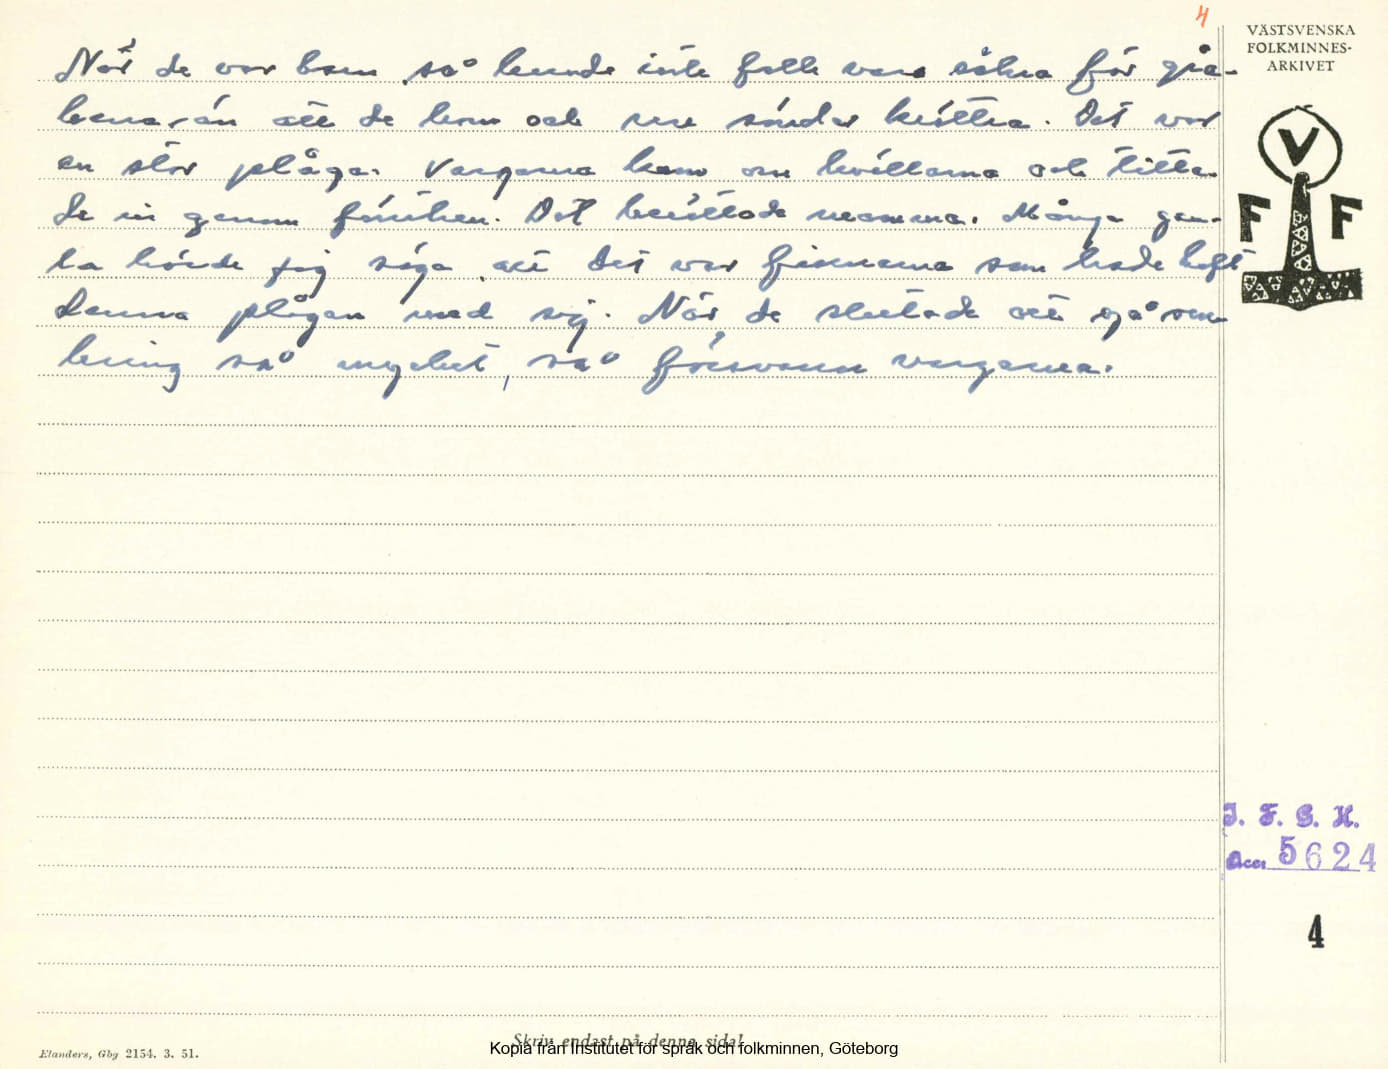 4
VÄSTSVENSKA
FOLKMINNES-
ARKIVET
När de var barn så kunde inte folk vara säkra för grå-
benarån att de kom och rev sönder krittra. Det var
en stor plåga. Vargarna kom om kvällarna och titta-
de in genom fönstren. Det berättade mamma. Många gam-
la hörde jag säga att det var finnarna som hade haft
denna plågan med sig. När de slutade att gå om-
kring så mycket, så försvann vargarna.
V
F F
I. F. G. H.
Acc. 5624
4
Skriv endast på denna sida!
Kopia från Institutet för språk och folkminnen, Göteborg
Elanders, Gbg 2154. 3. 51.